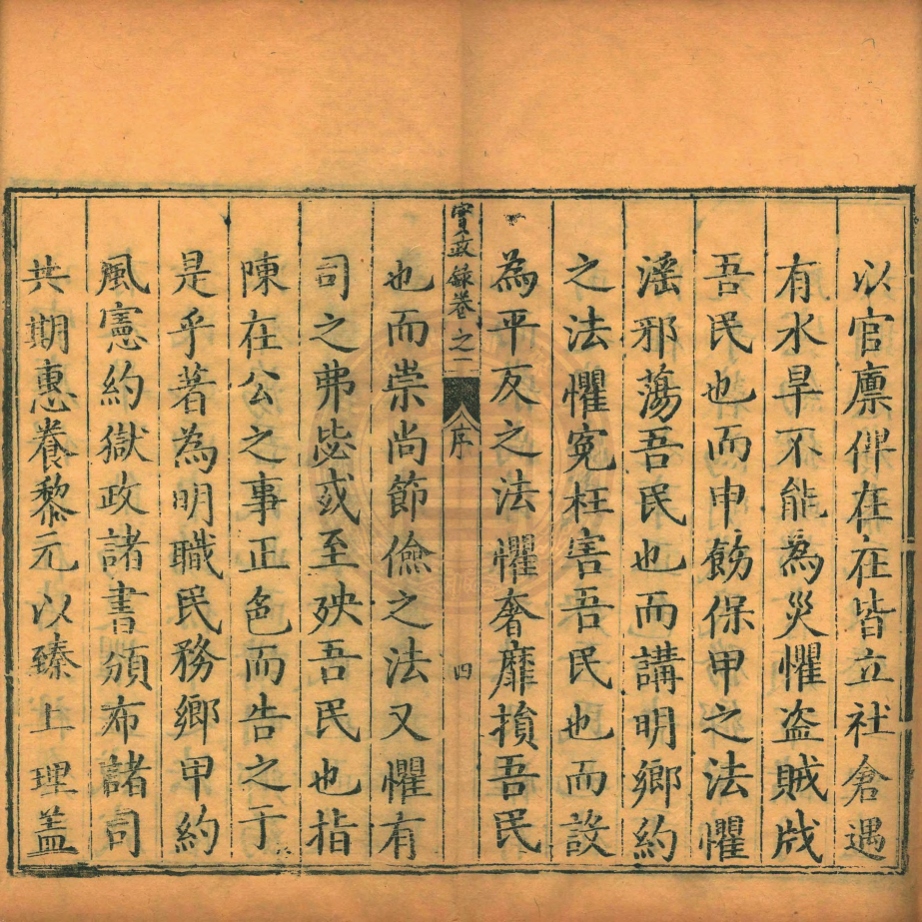 以官廪俾在在皆立社倉遇
有水旱不能為災懼盗賊戕
吾民也而申飭保甲之法懼
滛邪蕩吾民也而講明鄉約
之法懼寃枉害吾民也而設
為平反之法懼奢靡損吾民
實政録卷之二 序 四
也而崇尚節儉之法又懼有
司之弗毖或至殃吾民也指
陳在公之事正色而告之于
是乎著為明職民務鄉甲約
風憲約獄政諸書頒布諸司
共期惠養黎元以臻上理盖